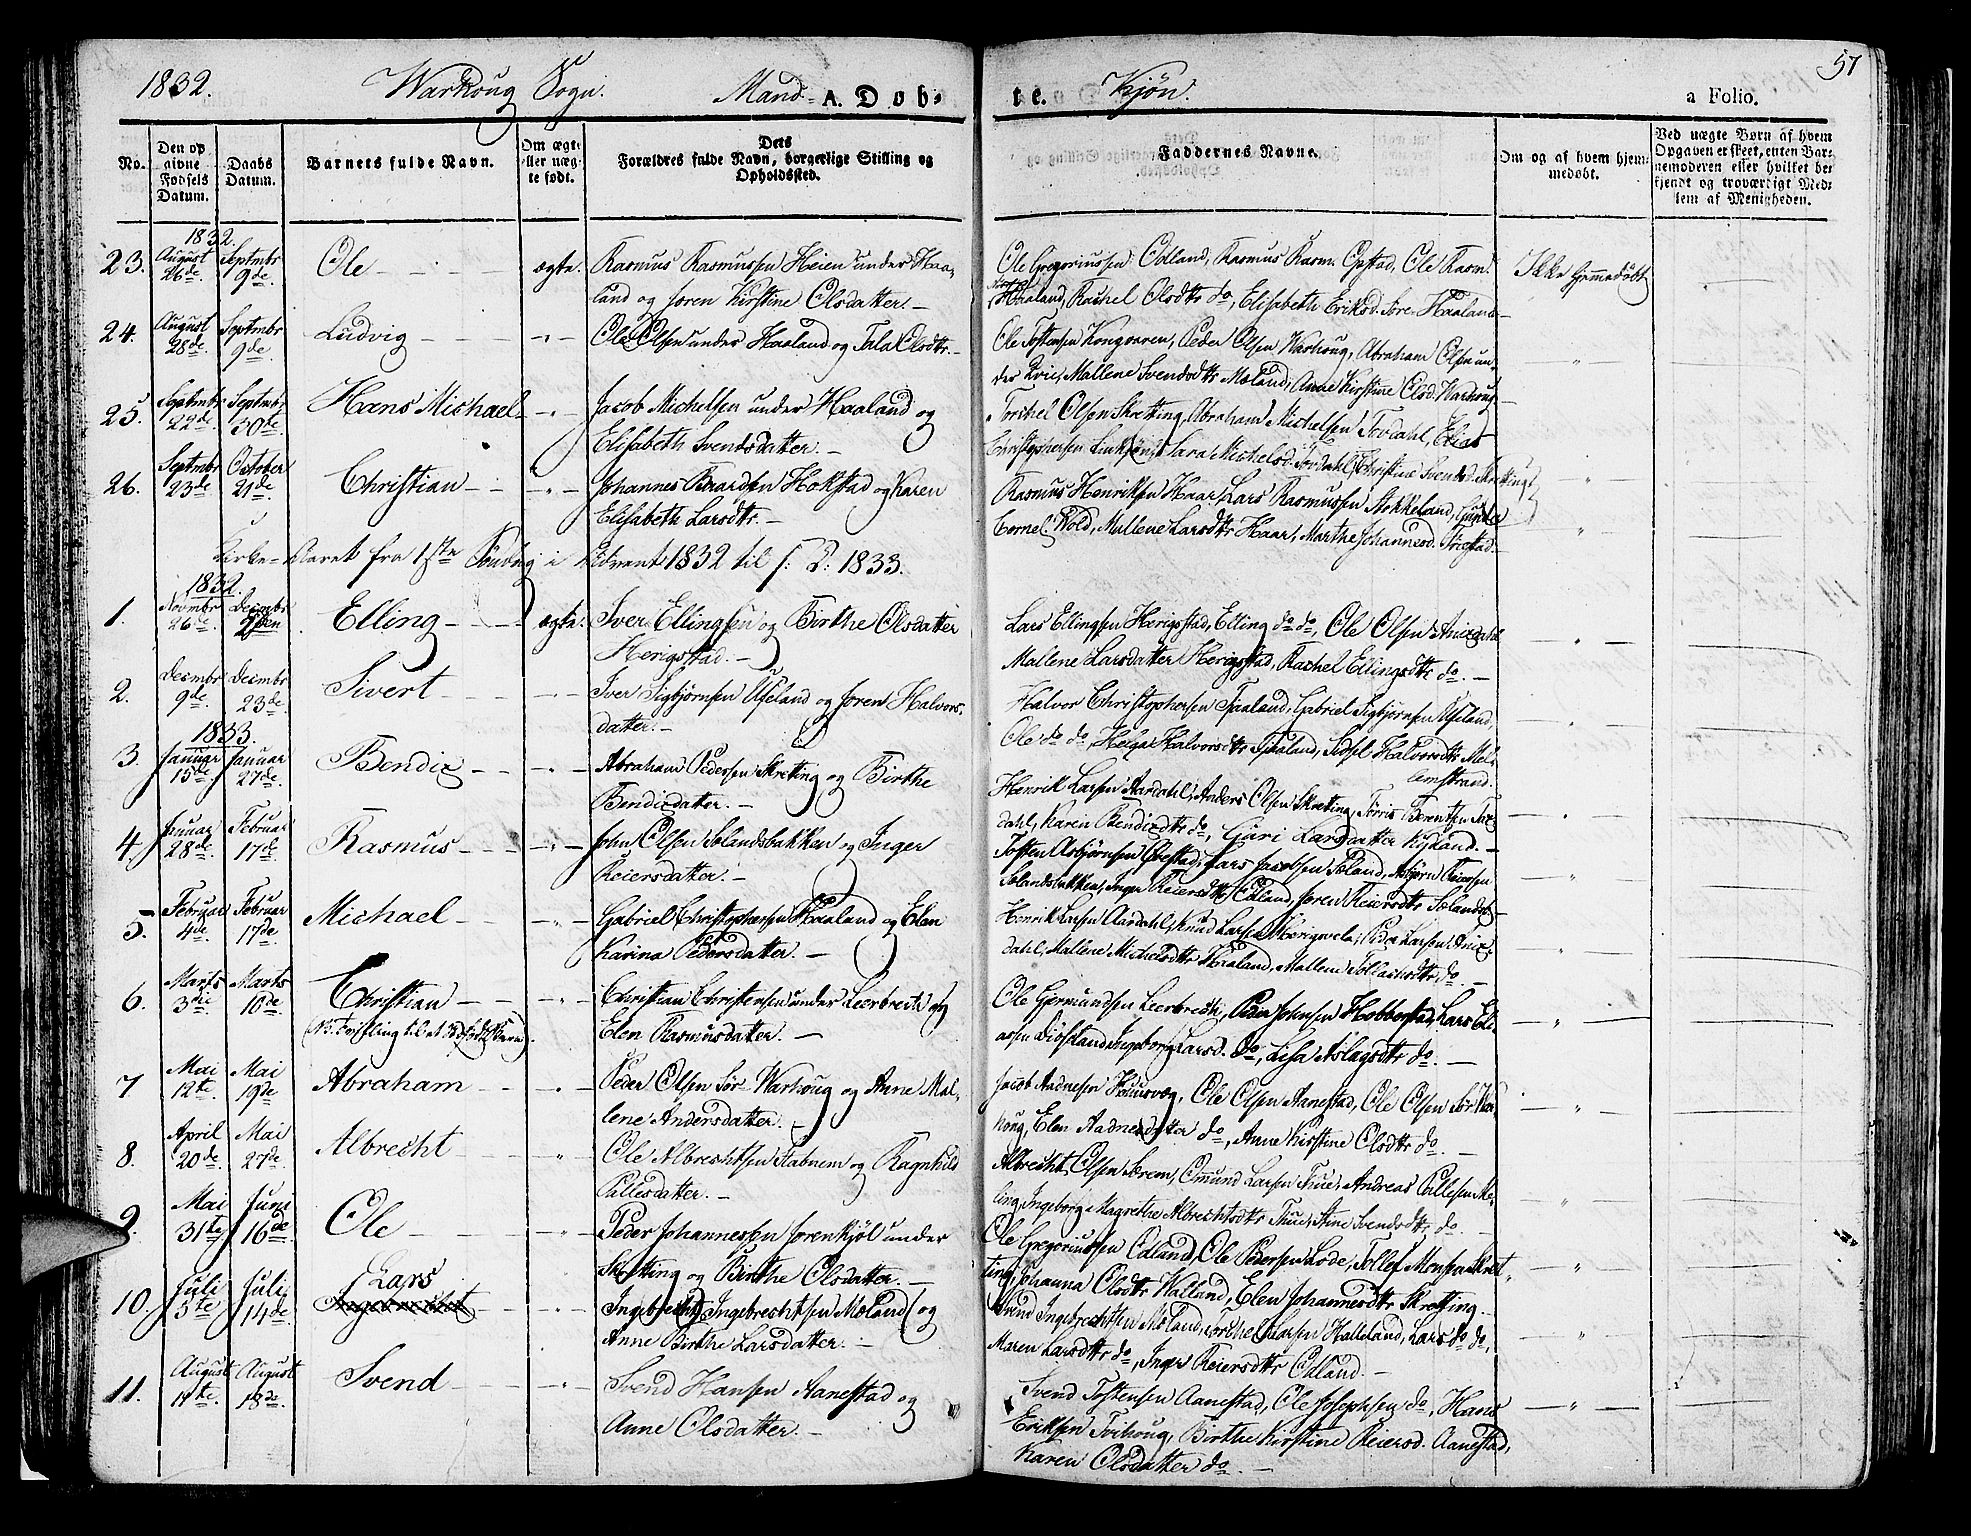 1832. Warhoug Sogn. Mand- A. Døb- te. Kjøn. a Folio. 57
No.
Den op
givne
Fødsels
Datum.
Daabs
Datum.
Barnets fulde Navn.
Om ægte
eller uæg-
te født.
Dets
Forældres fulde Navn, borgerlige Stilling og
Opholdssted.
Faddernes Navne.
Om og af hvem hjem-
medøbt.
Ved uægte Børn af hvem
Opgaven er skeet, enten Bar-
nemoderen eller hvilket be-
kjendt og troværdigt Med-
lem af Menigheden.
1832.
23. August 26de Septmbr 9de Ole ægte. Rasmus Rasmussen Heien under Haa-
land og Søren Kirstine Olsdatter.
Ole Gregoriussen Edland, Rasmus Rasm. Opstad, Ole Rasm.
Haaland, Rachel Olsdtr do, Elisabeth Eriksd. Søre-Haaland
Ikke hjemmedøbt
24. August 28de Septmbr 9de Ludvig Ole Olsen under Haaland og Tala Olsdtr.
Ole Tostensen Kongvaren, Peder Olsen Warhoug, Abraham Olsen un-
der Qvie, Mallene Svendsdtr Mæland, Anne Kirstine Olsd. Warhoug
25. Septmbr 22de Septmbr 30te Hans Michael Jacob Michelsen under Haaland og
Elisabeth Svendsdatter.
Torchel Olsen Skretting, Abraham Michelsen Tovdahl, Elias
Christophersen Sara Michelsd. Tovdahl, Christine Svendsd. Skretting
26. Septmbr 23de October 21de Christian Johannes Hokstad og Karen
Elisabeth Larsdtr.
Rasmus Henriksen Haar, Lars Rasmussen Stokkeland,
Cornel. Wold, Mallene Larsdtr Haar, Marthe Johannesd. Sørstad
Kirke-Aaret fra 1ste Søndag i Advent 1832 til s: D: 1833.
1832.
1. Novmbr 26de Decmbr Elling ægte. Iver Ellingsen og Birthe Olsdatter
Herigstad.
Lars Ellingsen Herigstad, Elling do do, Ole Olsen Anixdahl
Mallene Larsdatter Herigstad, Rachel Ellingsdtr do.
2. Decmbr 9de Decmbr 23de Sivert Iver Sigbjørnsen Useland og Søren Halvors-
datter.
Halvor Christophersen Taaland, Gabriel Sigbjørnsen Useland
Ole do do, Helga Halvorsdtr Taaland, Sidsel Halvorsdtr Mel-
Omstrand.
1833.
3. Januar 15de Januar 27de Bendix Abraham Pedersen Skretting og Birthe
Bendixdatter.
Henrik Larsen Aardahl, Anders Olsen Skretting, Tørris Berentsen
dahl, Karen Bendixdtr do, Guri Larsdatter Kydland.
4. Januar 28de Februar 17de Rasmus John Olsen Solandsbakken og Inger
Reiersdatter.
Tosten Asbjørnsen Opestad, Lars Jacobsen Søland, Asbjørn Reiersen
Solandsbakken, Inger Reiersdtr Edland, Søren Reiersdtr Solandsb.
5. Februar 4de Februar 17de Michael Gabriel Christophersen Haaland og Elen
Karina Pedersdatter.
Henrik Larsen Aardahl, Knud Larsen Peder Larsen Anix-
dahl, Mallene Michelsdtr Haaland, Mallene do.
6. Marts 3die Marts 10de Christian Christian Christensen under Leerbrek og
(NB. Tvilling til et Barn). Elen Rasmusdatter.
Ole Gjermundsen Leerbrek, Peder Johnsen Hobberstad, Lars Eli-
assen Diosland, Ingeborg Larsd. do, Lisa Aslagsdtr do.
7. Mai 12te Mai 19de Abraham Peder Olsen Sør Warhoug og Anne Mal-
lene Andersdatter.
Jacob Aadnesen Ole Olsen Aanestad, Ole Olsen Sør War-
houg, Elen Aadnesdatter do, Anne Kirstine Olsdtr do.
8. April 20de Mai 27de Albrecht Ole Albrechtsen Stabnem og Ragnhild
Pallesdatter.
Albrecht Olsen Sørem, Omund Larsen Thue, Andreas Pallesen Re-
Ingeborg Magrethe Albrechtsdtr Thue, Stine Svendsdtr do
9. Mai 31te Juni 16de Ole Peder Johannesen Sørenkjøl under
Skretting og Birthe Olsdatter.
Ole Gregoriussen Edland, Ole Pedersen Lode, Tollef Monsen Skret-
ting, Johanna Olsdtr Walland, Elen Johannesdtr Skretting.
10. Juli 5te Juli 14de Lars Ingebrecht Ingebrechtsen Mæland og
Anne Birthe Larsdatter.
Svend Ingebrechtsen Mæland, Torchel Larsen Halleland, Lars do do,
Maren Larsdtr do, Inger Reiersdtr Edland.
11. August 11te August 18de Svend Svend Hansen Aanestad og
Anne Olsdatter.
Svend Tostensen Aanestad, Ole Josephsen do, Hans
Eriksen Tvihoug, Birthe Kirstine Reiersd. Aanestad,
Karen Olsdatter do.